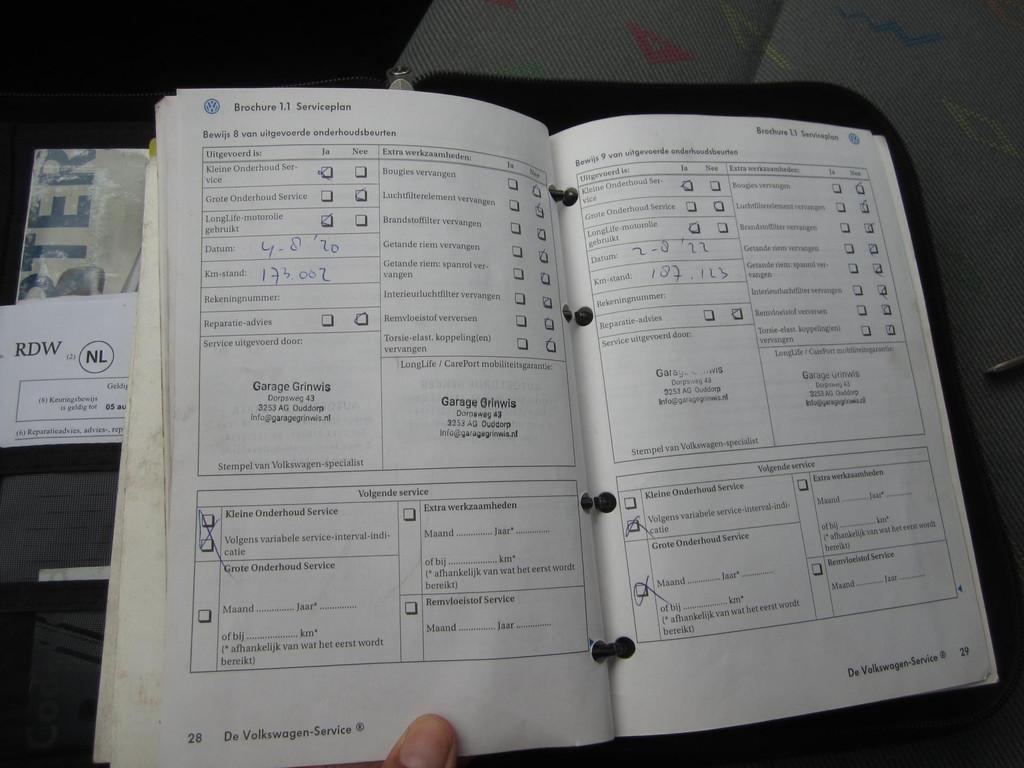 Brochure 1.1 Serviceplan
Bewijs 8 van uitgevoerde onderhoudsbeurten
Uitgevoerd is: Ja Nee
Kleine Onderhoud Ser-
vice
Grote Onderhoud Service
LongLife-motorolie
gebruikt
Datum: 4-8 '20
Km-stand: 173.002
Rekeningnummer:
Reparatie-advies
Service uitgevoerd door:
Garage Grinwis
Dorpsweg 43
3253 AG Ouddorp
Info@garagegrinwis.nl
Stempel van Volkswagen-specialist
Extra werkzaamheden: Ja Nee
Bougies vervangen
Luchtfilterelement vervangen
Brandstoffilter vervangen
Getande riem vervangen
Getande riem: spanrol ver-
vangen
Interieurluchtfilter vervangen
Remvloeistof verversen
Torsie-elast. koppeling(en)
vervangen
LongLife / CarePort mobiliteitsgarantie:
Garage Grinwis
Dorpsweg 43
3253 AG Ouddorp
Info@garagegrinwis.nl
Volgende service
Kleine Onderhoud Service
Volgens variabele service-interval-indi-
catie
Grote Onderhoud Service
Maand ............. Jaar* ..............
of bij .................... km*
(* afhankelijk van wat het eerst wordt
bereikt)
Extra werkzaamheden
Maand ............. Jaar* .............
of bij ................... km*
(* afhankelijk van wat het eerst wordt
bereikt)
Remvloeistof Service
Maand .............. Jaar .............
28 De Volkswagen-Service ®
Brochure 1.1 Serviceplan
Bewijs 9 van uitgevoerde onderhoudsbeurten
Uitgevoerd is: Ja Nee
Kleine Onderhoud Ser-
vice
Grote Onderhoud Service
LongLife-motorolie
gebruikt
Datum: 2-8 '22
Km-stand: 187.123
Rekeningnummer:
Reparatie-advies
Service uitgevoerd door:
Dorpsweg 43
3253 AG Ouddorp
Info@garagegrinwis.nl
Stempel van Volkswagen-specialist
Extra werkzaamheden: Ja Nee
Bougies vervangen
Luchtfilterelement vervangen
Brandstoffilter vervangen
Getande riem vervangen
Getande riem: spanrol ver-
vangen
Interieurluchtfilter vervangen
Remvloeistof verversen
Torsie-elast. koppeling(en)
vervangen
LongLife / CarePort mobiliteitsgarantie:
Garage Grinwis
Dorpsweg 43
3253 AG Ouddorp
Info@garagegrinwis.nl
Volgende service
Kleine Onderhoud Service
Volgens variabele service-interval-indi-
catie
Grote Onderhoud Service
Maand ............ Jaar* .............
of bij .................... km*
(* afhankelijk van wat het eerst wordt
bereikt)
Extra werkzaamheden
Maand ........... Jaar* ...........
of bij .................. km*
(* afhankelijk van wat het eerst wordt
bereikt)
Remvloeistof Service
Maand ............ Jaar ............
De Volkswagen-Service ® 29
RDW (2) NL
(8) Keuringsbewijs
is geldig tot 05 au
(6) Reparatieadvies, advies-, rep